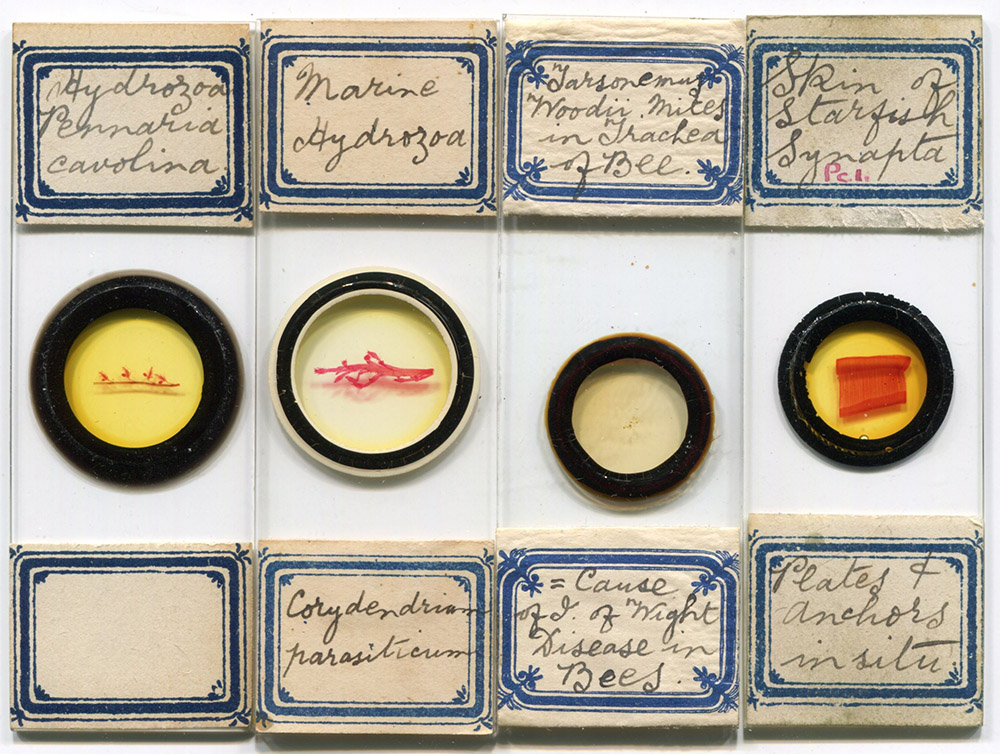 Hydrozoa
Pennaria
cavolina
Marine
Hydrozoa
Tarsonemus
Woodii. Mites
in Trachea
of Bee.
Skin of
Starfish
Synapta
Pc.1.
Corydendrium
parasiticum
= Cause
of I. of Wight
Disease in
Bees.
Plates &
anchors
in situ.